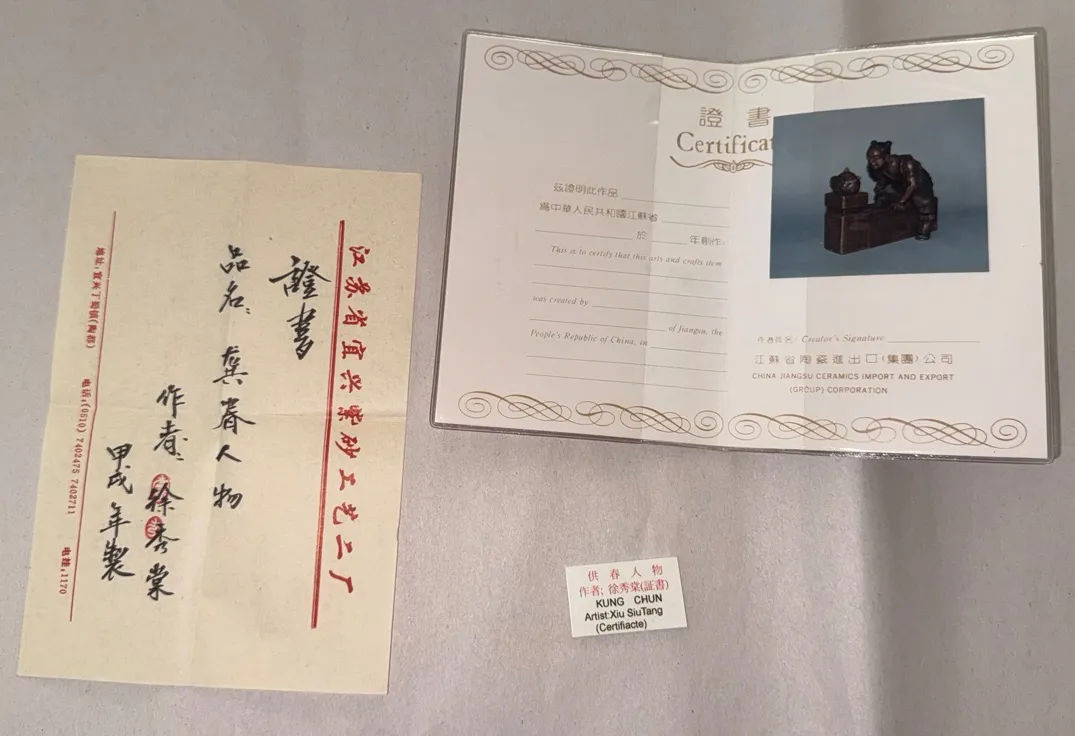 江苏省宜兴紫砂工艺二厂
證書
品名：龚春人物
作者：徐秀棠
甲戌年製
地址：宜兴丁蜀镇(陶都) 电话：(0510) 7402475 7402711 电挂：1170
證書
Certificat
兹證明此作品
爲中華人民共和國江蘇省
於 年創作。
This is to certify that this arts and crafts item
was created by
of Jiangsu, the
People's Republic of China, in
作者姓名/Creator's Signature
江蘇省陶瓷進出口(集團)公司
CHINA JIANGSU CERAMICS IMPORT AND EXPORT
(GROUP) CORPORATION
供春人物
作者; 徐秀棠(証書)
KUNG CHUN
Artist:Xiu SiuTang
(Certifiacte)